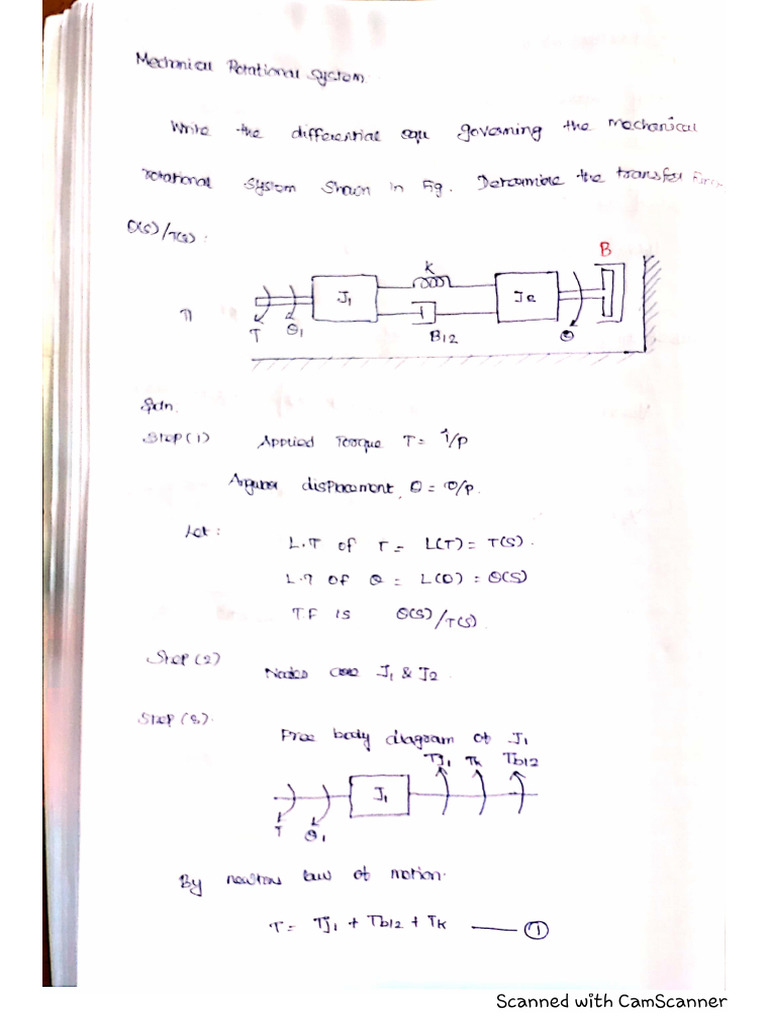 Mechanical Rotational System
Write the differential equ governing the mechanical
rotational System Shown in Fig. Determine the transfer
θ(s)/T(s) :
B
K
J1
J2
T
θ1
B12
θ
Soln.
Step (1) Applied Torque T = i/p
Angular displacement, θ = o/p.
Let :
L.T of T = L(T) = T(S).
L.T of θ = L(θ) = θ(S)
T.F is θ(S)/T(S).
Step (2) Nodes are J1 & J2.
Step (3). Free body diagram of J1
TJ1 TK Tb12
J1
T θ1
By newtons law of motion.
T = TJ1 + Tb12 + TK —— ①
Scanned with CamScanner